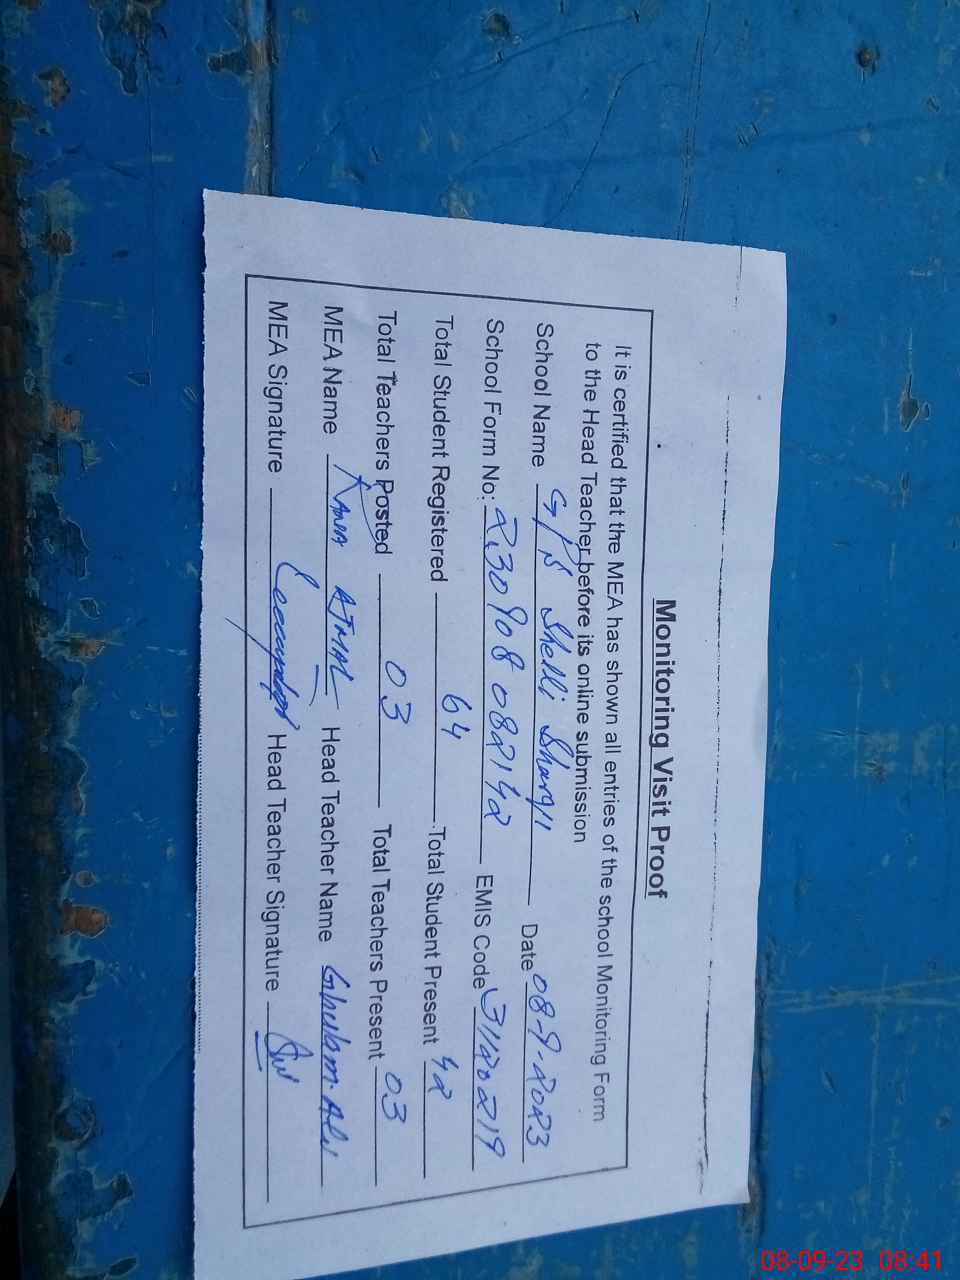 Monitoring Visit Proof
It is certified that the MEA has shown all entries of the school Monitoring Form
to the Head Teacher before its online submission
School Name GPS Shelli Sharqii Date 08-9-2023
School Form No: 230908082142 EMIS Code 31120219
Total Student Registered 64 Total Student Present 42
Total Teachers Posted 03 Total Teachers Present 03
MEA Name AJMAL Head Teacher Name Ghulam Ali
MEA Signature Head Teacher Signature
08-09-23 08:41